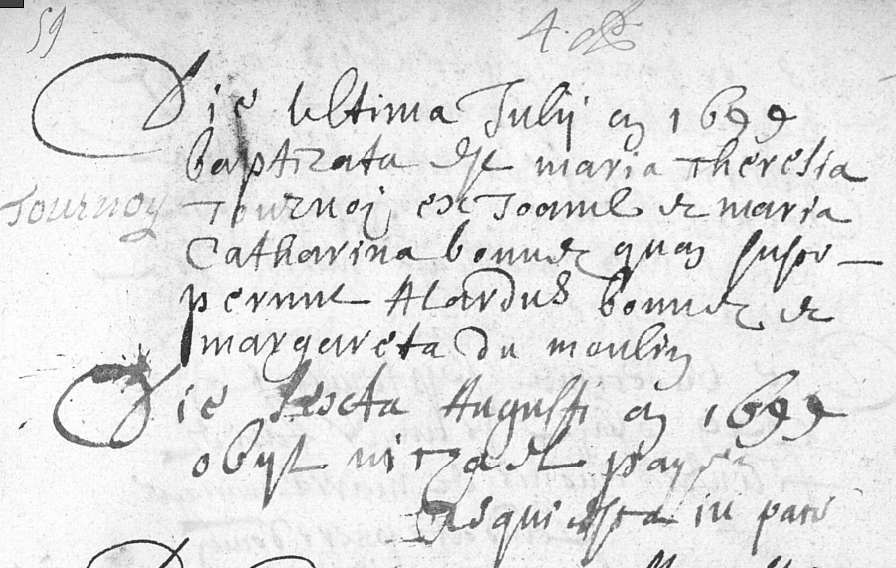 59
4.
Die Ultima Julij an 1699
baptizata est maria theresia
Tournoy
Tournoij ex Joanne et maria
Catharina bonnet quam susce-
perunt Alardus bonnet et
margareta du moulin
Die sexta Augusti an 1699
obijt michael
Requiescat in pace